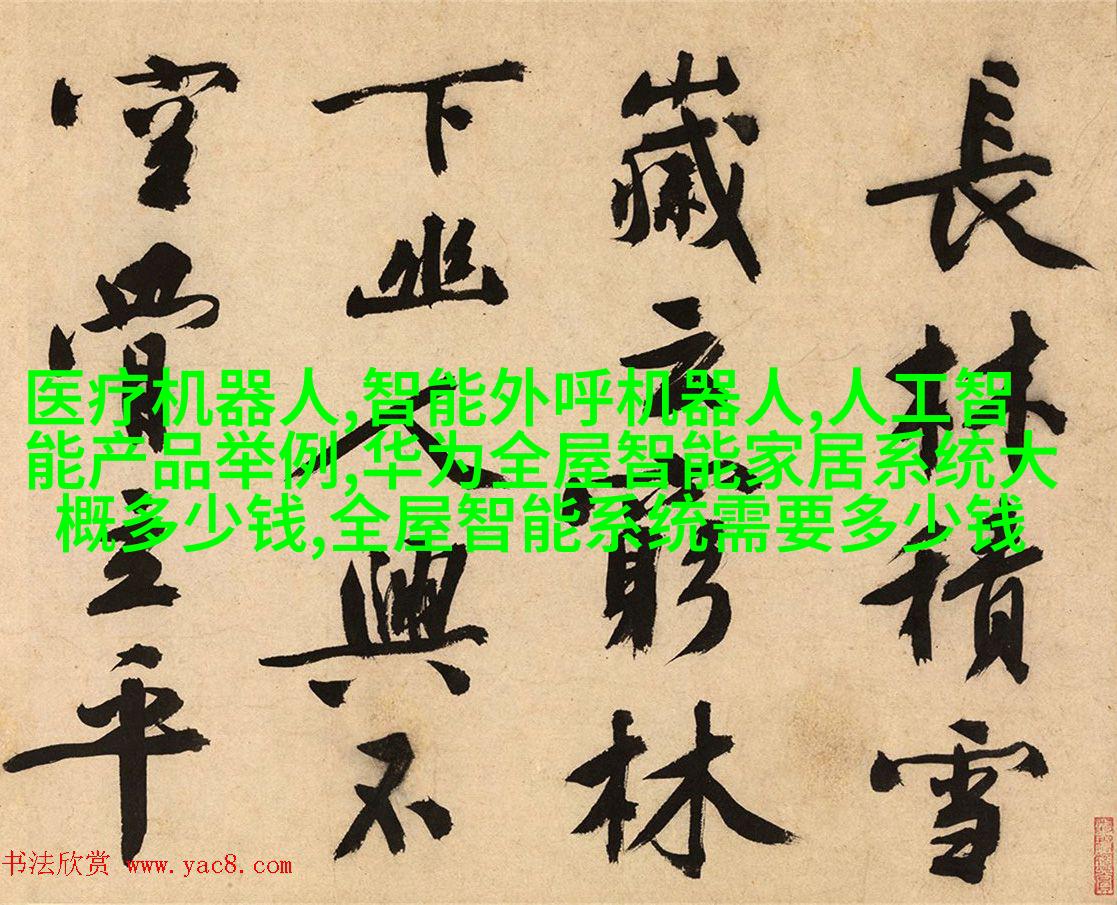 長林積雪
歲方窮林
下幽人興不
空骨立平
医疗机器人,智能外呼机器人,人工智
能产品举例,华为全屋智能家居系统大
概多少钱,全屋智能系统需要多少钱
书法欣赏 www.yac8.com